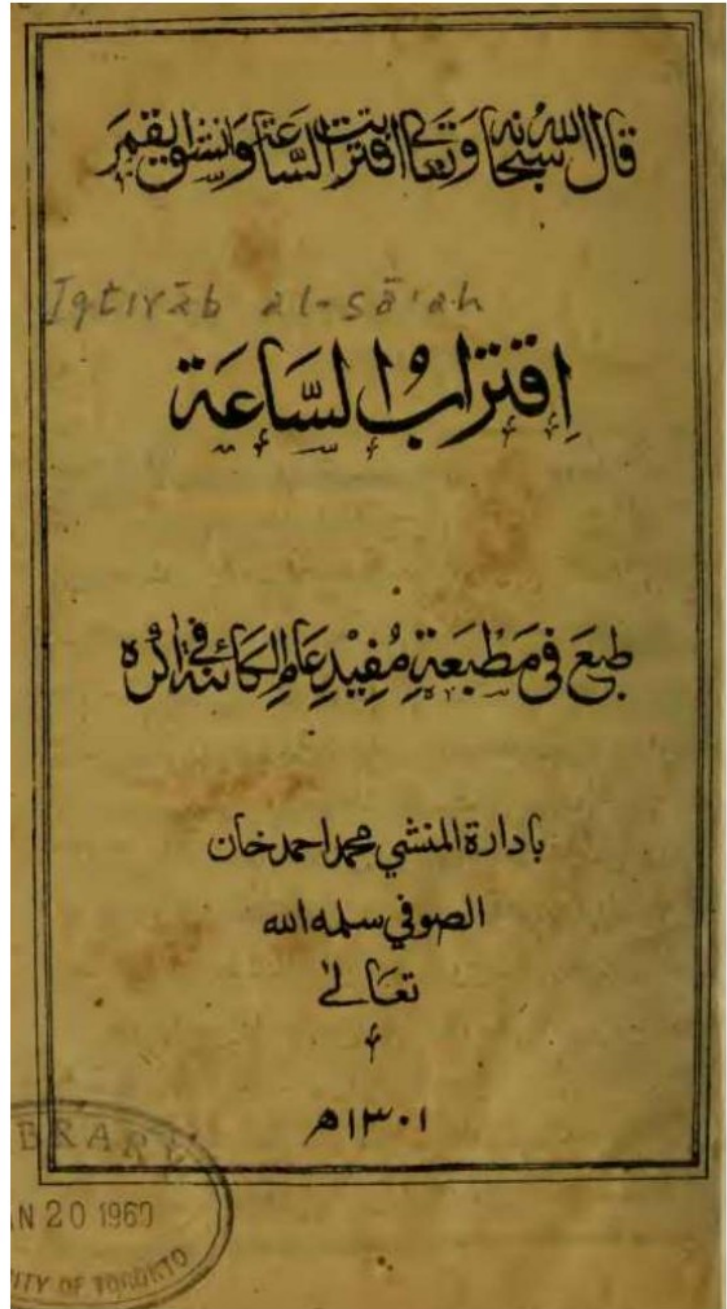 قال الله سبحانه وتعالى اقتربت الساعة وانشق القمر
Iqtirāb al-sā'ah
اِقتِرَابُ السَّاعَة
طبعَ فى مَطْبَعَةِ مُفِيْدِ عَامِ الكائنة في اكره
بادارة المنشي محمد احمد خان
الصوفي سلمه الله
تعَالىٰ
١٣٠١ھ
BRARY
N 20 1960
ITY OF TORONTO